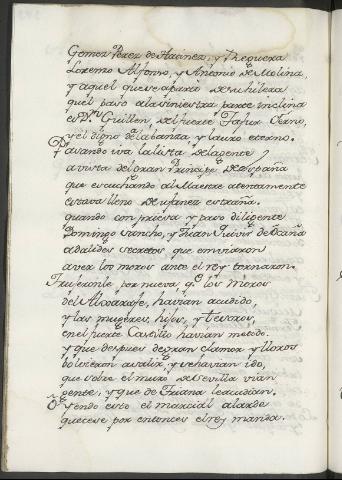 Gomez Perez de Hacinez, y Requera
Lorenzo Alfonso, y Antonio de Molina,
y aquel que se aparió de su hilera
quel paso a la siniestra parte inclina
es Dn. Guillen del fuerte Tafur
y el digno de alabanza y lauro eterno.
Pasando iva la lista de la gente
a vista del gran Principe de España
que escuchando al Maestre atentamente
estava lleno de ufanea estraña.
quando con priesa y paso diligente
Domingo Sancho, y Juan Ruiz de
adalides secretos que enviaron
a ver los moros ante el rey tornaron.
Trujeronle por nueva, qe. los moros
del Alxarafe, havian acudido,
y las mugeres, hijos, y tesoros,
en el fuerte Castillo havian metido.
y que despues de gran clamor, y lloros
bolvieron a salir, y se havian ido,
que sobre el muro de Sevilla vian
gente, y que de Triana le acudian.
Oyendo esto el marcial alarde
que cese por entonces el rey manda.